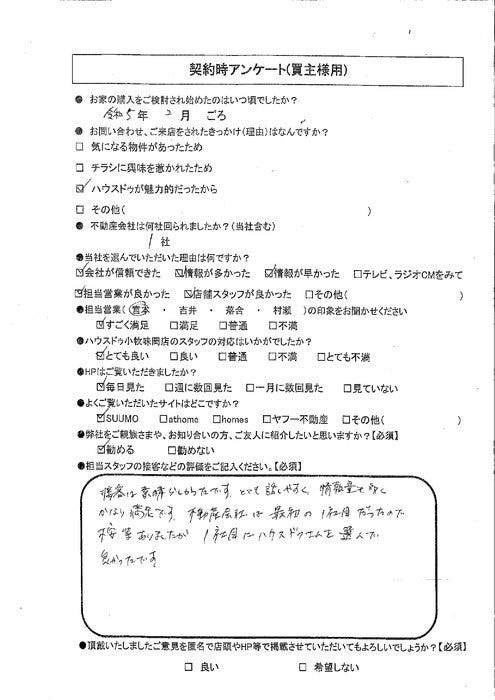 契約時アンケート(買主様用)
● お家の購入をご検討され始めたのはいつ頃でしたか？
令和5年 2月 ごろ
● お問い合わせ、ご来店をされたきっかけ(理由)はなんですか？
□ 気になる物件があったため
□ チラシに興味を惹かれたため
☑ ハウスドゥが魅力的だったから
□ その他( )
● 不動産会社は何社回られましたか？(当社含む)
1 社
●当社を選んでいただいた理由は何ですか？
☑会社が信頼できた ☑情報が多かった ☑情報が早かった □テレビ、ラジオCMをみて
☑担当営業が良かった ☑店舗スタッフが良かった □その他( )
●担当営業( ・ 吉井 ・ 落合 ・ 村瀬 )の印象をお聞かせください
☑すごく満足 □満足 □普通 □不満
●ハウスドゥ小牧味岡店のスタッフの対応はいかがでしたか？
☑とても良い □良い □普通 □不満 □とても不満
●HPはご覧いただきましたか？
☑毎日見た □週に数回見た □一月に数回見た □見ていない
●よくご覧いただいたサイトはどこですか？
☑SUUMO □athome □homes □ヤフー不動産 □その他( )
●弊社をご親族さまや、お知り合いの方、ご友人に紹介したいと思いますか？【必須】
☑勧める □勧めない
●担当スタッフの接客などの評価をご記入ください。【必須】
接客は素晴らしかったです。とても話しやすく、情報量も
かなり満足です。不動産会社は最初の1社目だったので
ありましたが 1社目にハウスドゥさんを選んで
良かったです
●頂戴いたしましたご意見を匿名で店頭やHP等で掲載させていただいてもよろしいでしょうか？【必須】
□ 良い □ 希望しない